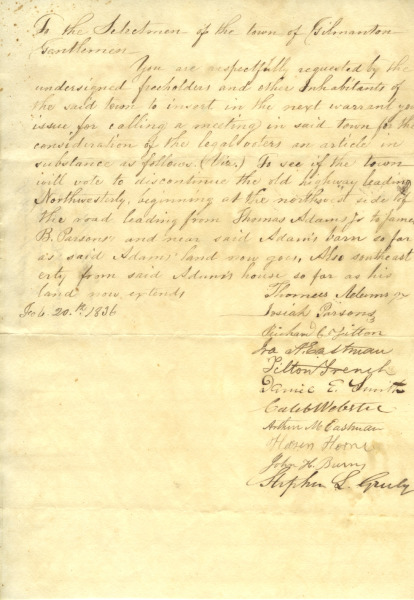 To the Selectmen of the town of Gilmanton
Gentlemen
You are respectfully requested by the
undersigned freeholders and other Inhabitants of
the said town to insert in the next warrant you
issue for calling a meeting in said town for the
consideration of the legal voters an article in
substance as follows (Viz.) To see if the town
will vote to discontinue the old highway leading
Northwesterly, beginning at the northwest side of
the road leading from Thomas Adams Jr to James
B. Parsons and near said Adam's barn so far
as said Adams' land now goes, Also southeast
erly from said Adams's house so far as his
land now extends
Feb. 20.th 1836
Thomas Adams Jr
Josiah Parsons
Tilton
Ira A. Eastman
Tilton French
E. Smith
Caleb Webster
Arthur M Eastman
John H. Burns
Stephen L. Greely